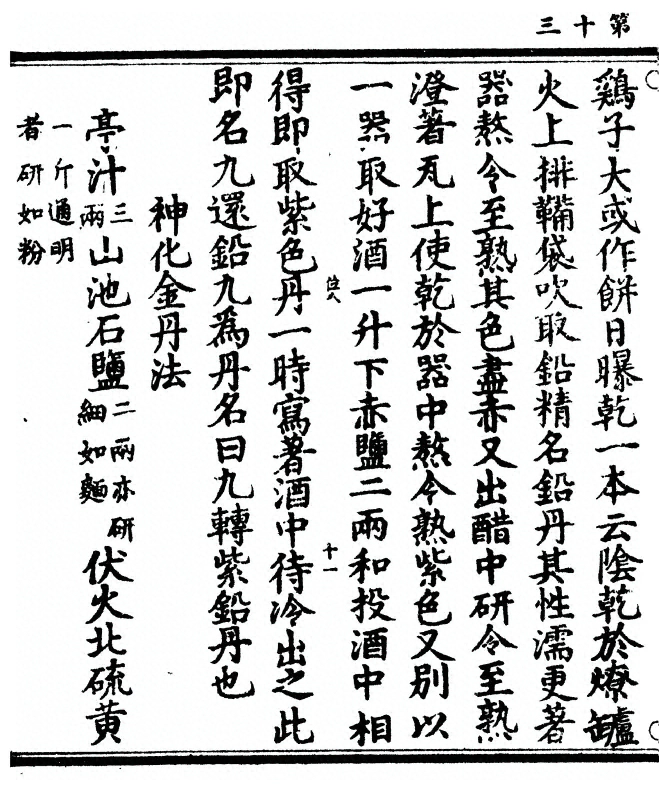 第十三
鷄子大或作餅日曝乾一本云陰乾於燎罏
火上排鞴袋吹取鉛精名鉛丹其性濡更著
器熬令至熟其色盡赤又出醋中研令至熟
澄著瓦上使乾於器中熬令熟紫色又別以
一器取好酒一升下赤鹽二兩和投酒中相
十一
得即取紫色丹一時寫著酒中待冷出之此
即名九還鉛九爲丹名曰九轉紫鉛丹也
神化金丹法
亭汁三兩山池石鹽二兩亦研細如麵伏火北硫黄
一斤通明
者研如粉